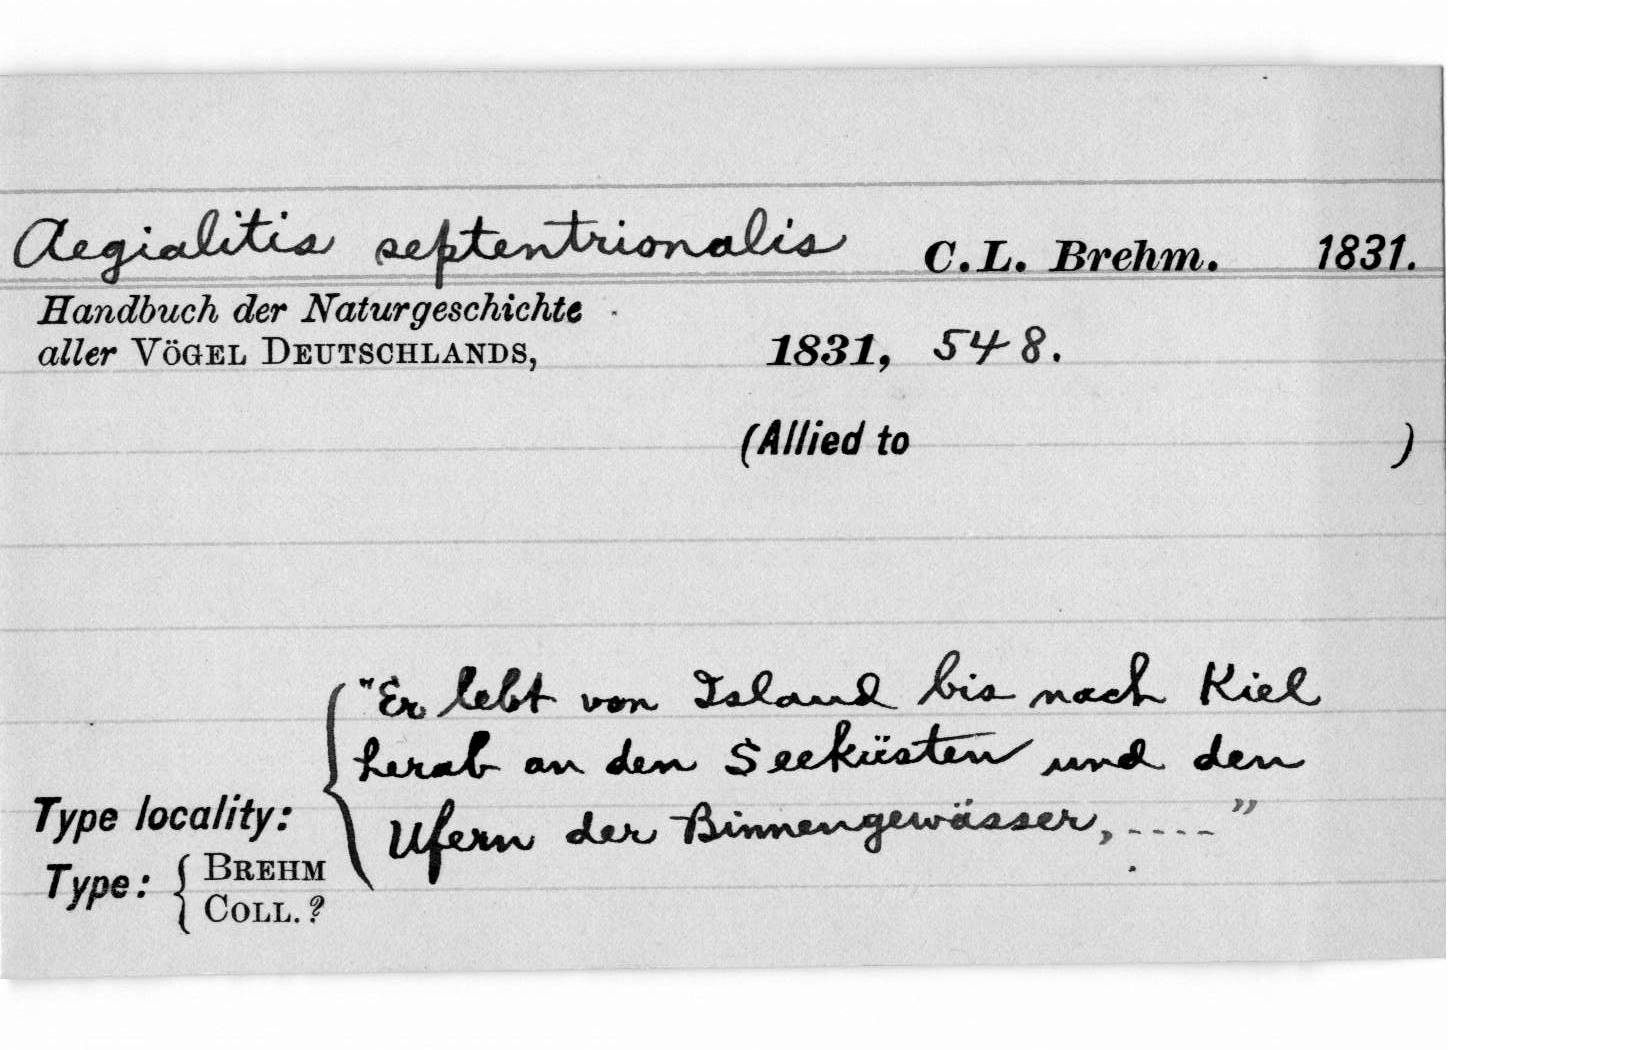 Aegialitis septentrionalis C.L. Brehm. 1831.
Handbuch der Naturgeschichte
aller VÖGEL DEUTSCHLANDS, 1831, 548.
(Allied to )
"Er lebt von Island bis nach Kiel
herab an den Seeküsten und den
Type locality: Ufern der Binnengewässer, ----"
Type: BREHM
COLL.?